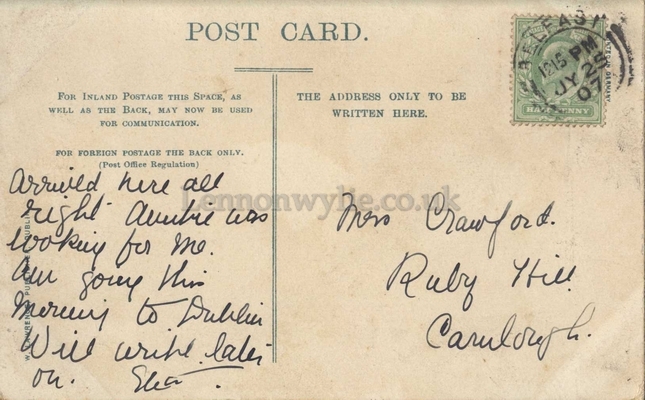 POST CARD.
FOR INLAND POSTAGE THIS SPACE, AS
WELL AS THE BACK, MAY NOW BE USED
FOR COMMUNICATION.
FOR FOREIGN POSTAGE THE BACK ONLY.
(Post Office Regulation)
Arrived here all
right Auntie was
looking for me.
Am going this
morning to Dublin
Will write later
on.
THE ADDRESS ONLY TO BE
WRITTEN HERE.
BELFAST
12.15 PM
JY 25
07
HALFPENNY
Miss Crawford.
Ruby Hill
Carnlough.
Lennonwylie.co.uk